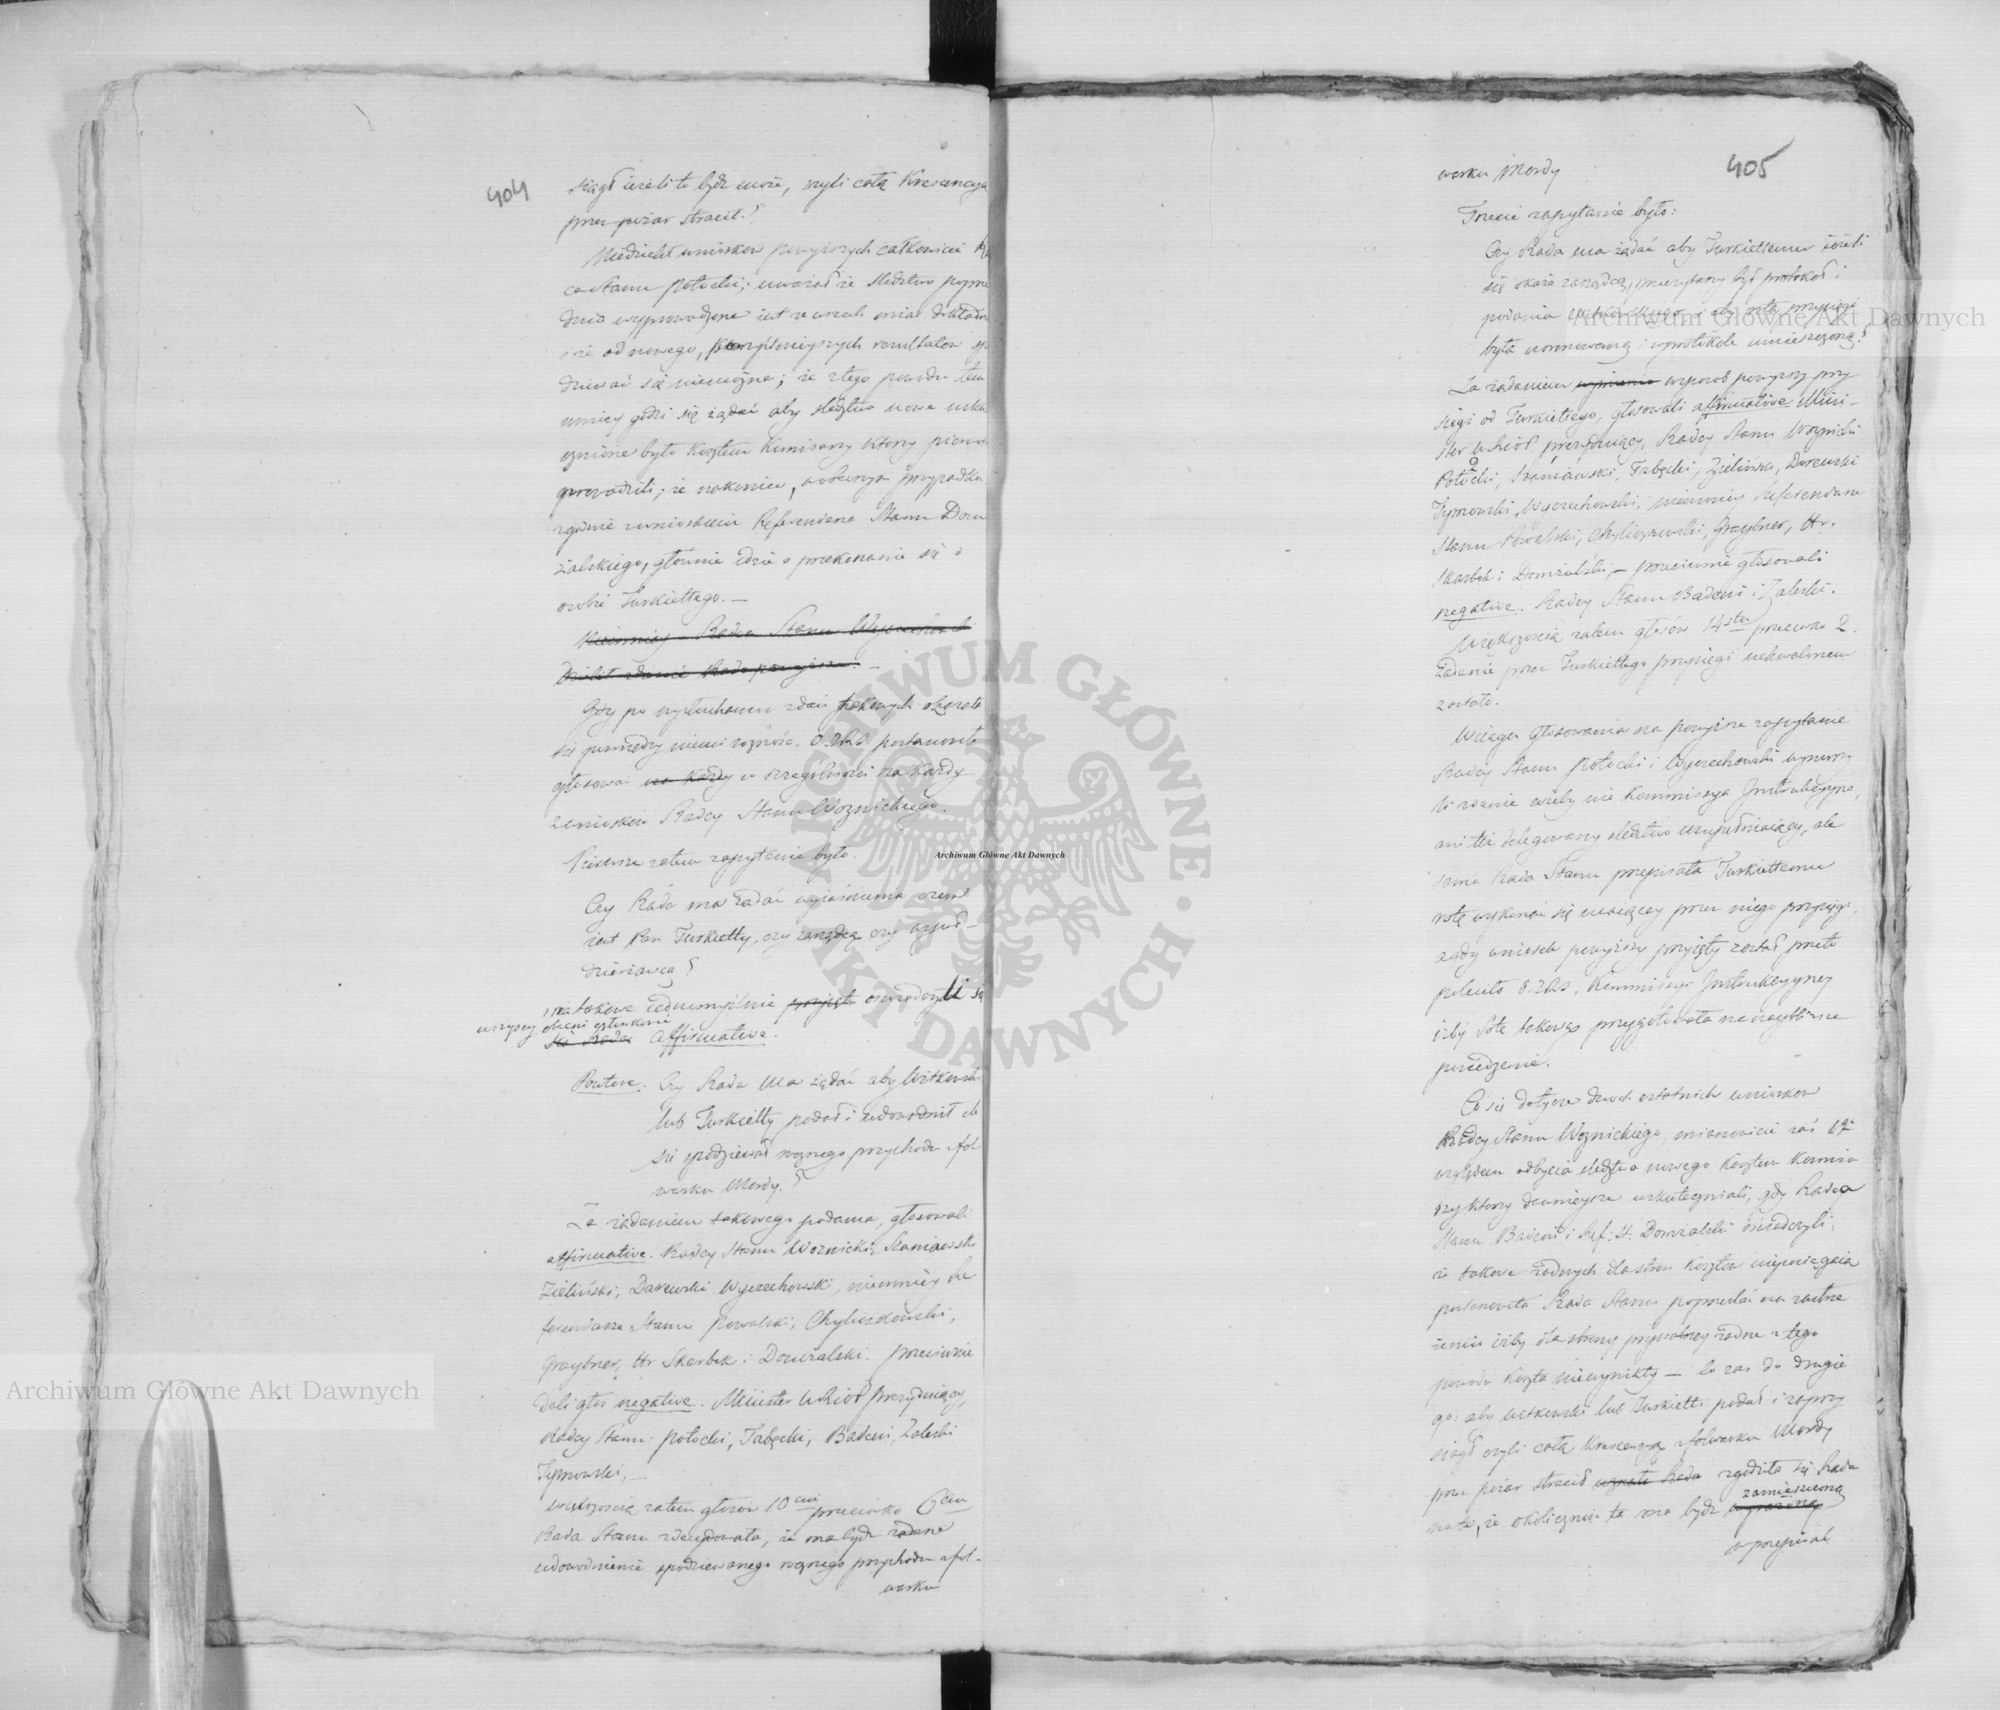 404
siągł ieżeli to bydź może, czyli całą Krescencyą
przez pożar stracił?
Niedzielił wniosków powyższych całkowicie R
ca Stanu Potocki; uważał że śledztwo poprze
dnio wyprowadzone iest ze wszech miar dokładne
i że od nowego, pomyślnieyszych rezultatów sp
dziewać się niemożna; że z tego powodu tem
mniey godzi się żądać aby śledztwo nowe usku
cznione było kosztem Kommisarzy którzy pierwsze
prowadzili; że nakoniec, w obecnym przypadku
zgodnie z wnioskiem Referendarza Stanu Dom
żalskiego, głównie idzie o przekonanie się o
osobie Turkiettego. —
Niemniey Radca Stanu Wyczechowski
Gdy po wysłuchaniu zdań takowych okazała
się pomiędzy niemi różność, O. Zbb postanowiło
głosować na każdy w szczególności na każdy
z wniosków Radcy Stanu Woznickiego.
Pierwsze zatem zapytanie było.
Czy Rada ma żądać wyiaśnienia czem
iest Pan Turkietty, czy zarządcą czy współ-
dzierżawcą?
i na takowe iednomyślnie przyięto oświadczyli się
wszyscy obecni członkowie
się Rada affirmative.
Powtóre: Czy Rada ma żądać aby Witkowski
lub Turkietty podał i udowodnił ile
się spodziewał rocznego przychodu z fol
warku Mordy?
Za żądaniem takowego podania, głosowali
affirmative. Radcy Stanu Woznicki, Staniawski
Zieliński, Darewski Wyczechowski, niemniey Re
ferendarze Stanu Kowalski, Chyliczkowski,
Graybner, Hr Skarbek i Domżalski. Przeciwnie
dali głos negative. Minister W. Rior Prezyduiący,
Radcy Stanu: Potocki, Tabęcki, Badeni, Zaleski
Tymowski, —
większością zatem głosów 10ciu przeciwko 6ciu
Rada Stanu zdecydowała, że ma bydź żądane
udowodnienie spodziewanego rocznego przychodu z fol-
warku
405
warku Mordy
Trzecie zapytanie było:
Czy Rada ma żądać aby Turkiettemu ieżeli
się okaże zarządcą, przeczytany był protokół i
podania Witkowskiego i aby rota przysięgi
była unormowaną i w protokóle umieszczoną?
Za żądaniem w sposób powyższy przy
sięgi od Turkiettego, głosowali affirmative Mini-
ster prezyduiący, Radcy Stanu Woznicki
Potocki, Staniawski, Tabęcki, Zieliński, Darewski
Tymowski, Wyczechowski, niemniey Referendarze
Stanu Kowalski, Chyliczkowski, Graybner, Hr.
Skarbek i Domżalski, — przeciwnie głosowali
negative. Radcy Stanu Badeni i Zaleski.
Większością zatem głosów 14stu przeciwko 2.
żądanie przez Turkiettego przysięgi uchwalonem
zostało.
W ciągu głosowania na powyższe zapytanie
Radcy Stanu Potocki i Wyczechowski wynurzy
li zdanie iżeby nie Kommissya Instrukcyyna,
ani też delegowany śledztwo uzupełniaiący, ale
sama Rada Stanu przepisała Turkiettemu
rotę wykonać się maiącey przez niego przysięgi,
a gdy wniosek powyższy przyięty został przeto
poleciło O. Zbb. Kommissyi Instrukcyyney
iżby rotę takową przygotowała na naybliższe
posiedzenie.
Co się dotycze dwóch ostatnich wniosków
Radcy Stanu Woznickiego, mianowicie zaś 1go
względem odbycia śledztwa nowego kosztem Kommissa
rzy którzy dawnieysze uskuteczniali, gdy Radca
Stanu Badeni i Ref: St: Domżalski oświadczyli,
że takowe żadnych dla stron kosztów niepociągnie
postanowiła Rada Stanu poprzestać na zastrze
żeniu iżby dla strony prywatney żadne z tego
powodu koszta niewynikły — co zaś do drugie
go: aby Witkowski lub Turkietti podał i zaprzy
siągł czyli całą Krescencyą z folwarku Mordy
przez pożar stracił uznała Rada zgodziła się Rada
na to, że okoliczność ta ma bydź wyrażoną zamieszczoną
w przepisać
Archiwum Główne Akt Dawnych
Archiwum Główne Akt Dawnych
Archiwum Główne Akt Dawnych
ARCHIWUM GŁÓWNE · AKT DAWNYCH ·